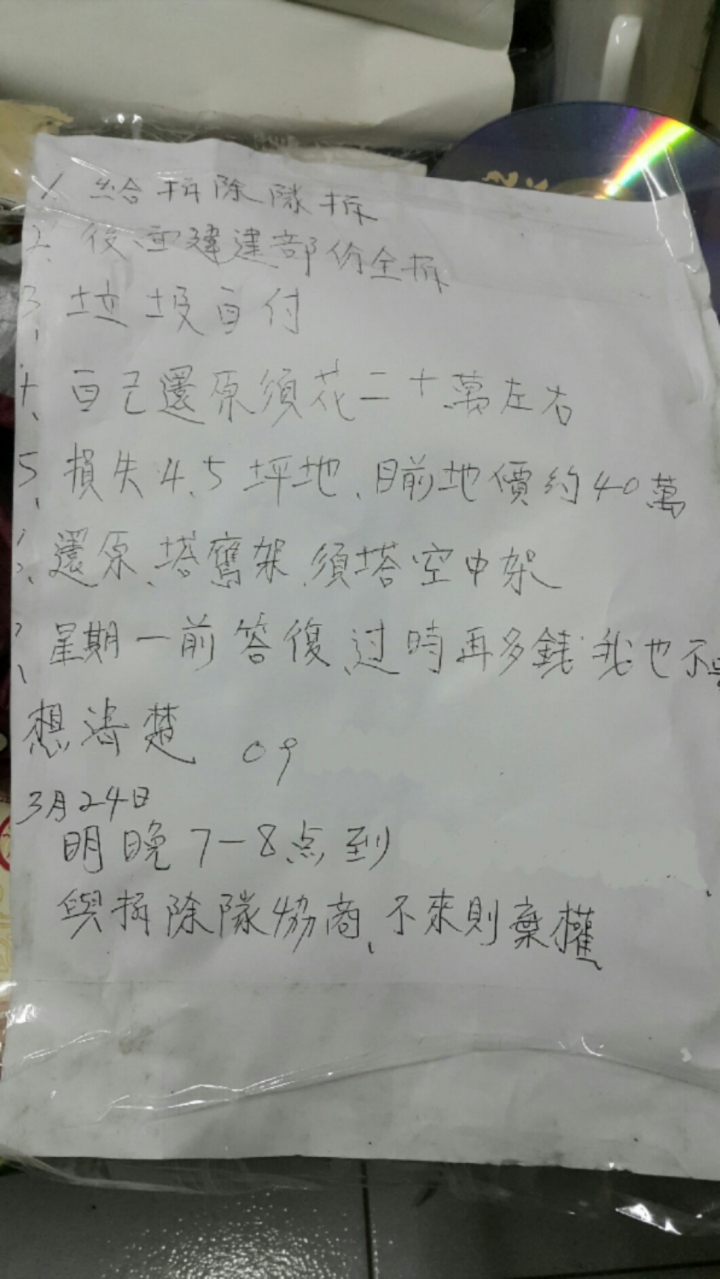 1. 給拆除隊拆
2. 後面違建部份全拆
3. 垃圾自付
4. 自己還原須花二十萬左右
5. 損失4.5坪地、目前地價約40萬
還原、塔鷹架、須塔空中架
星期一前答復、过時再多錢我也不
想清楚 09
3月24日
明晚7-8点到
與拆除隊協商、不來則棄權